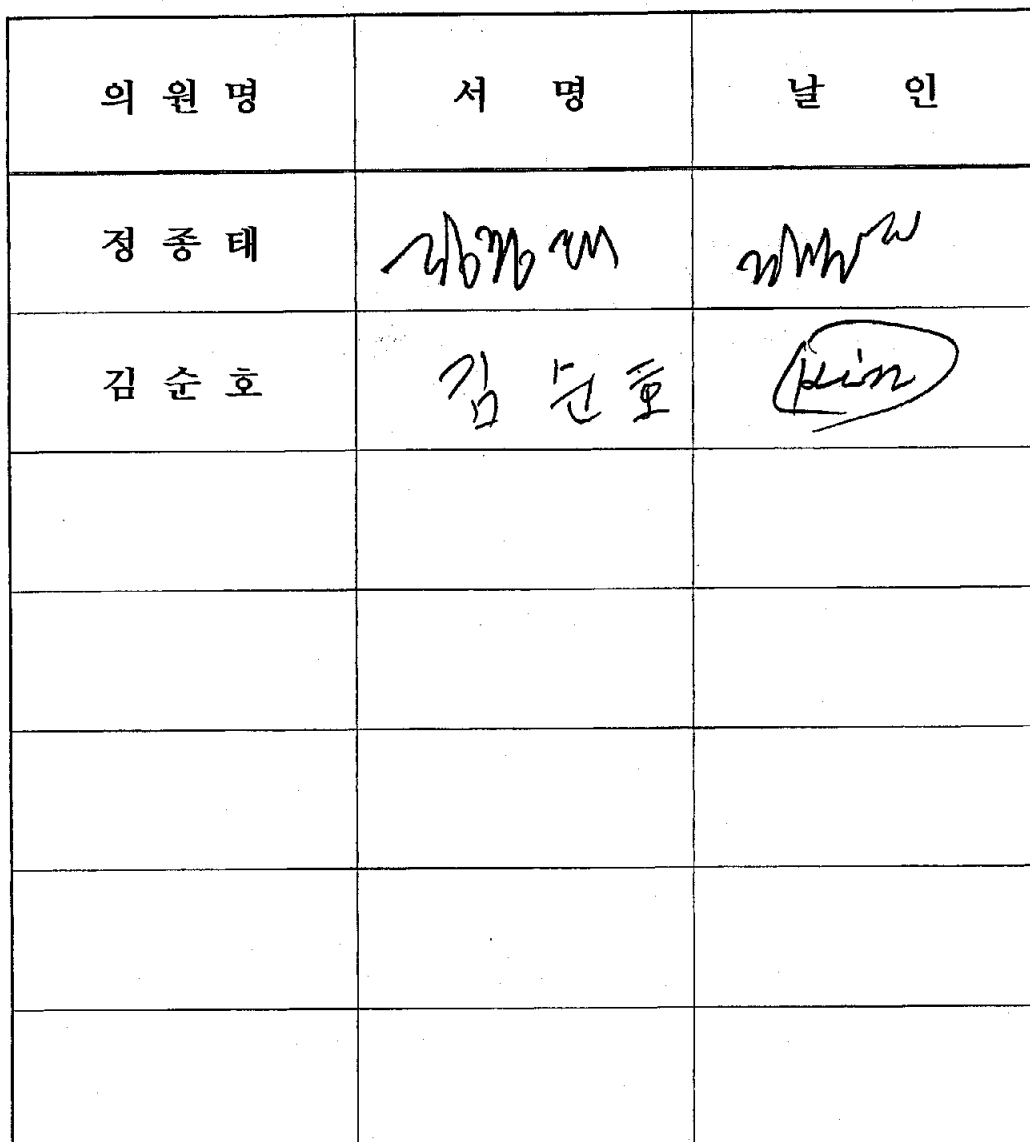 의 원 명 서 명 날 인
정 종 태
김 순 호 김 순 호 Kim